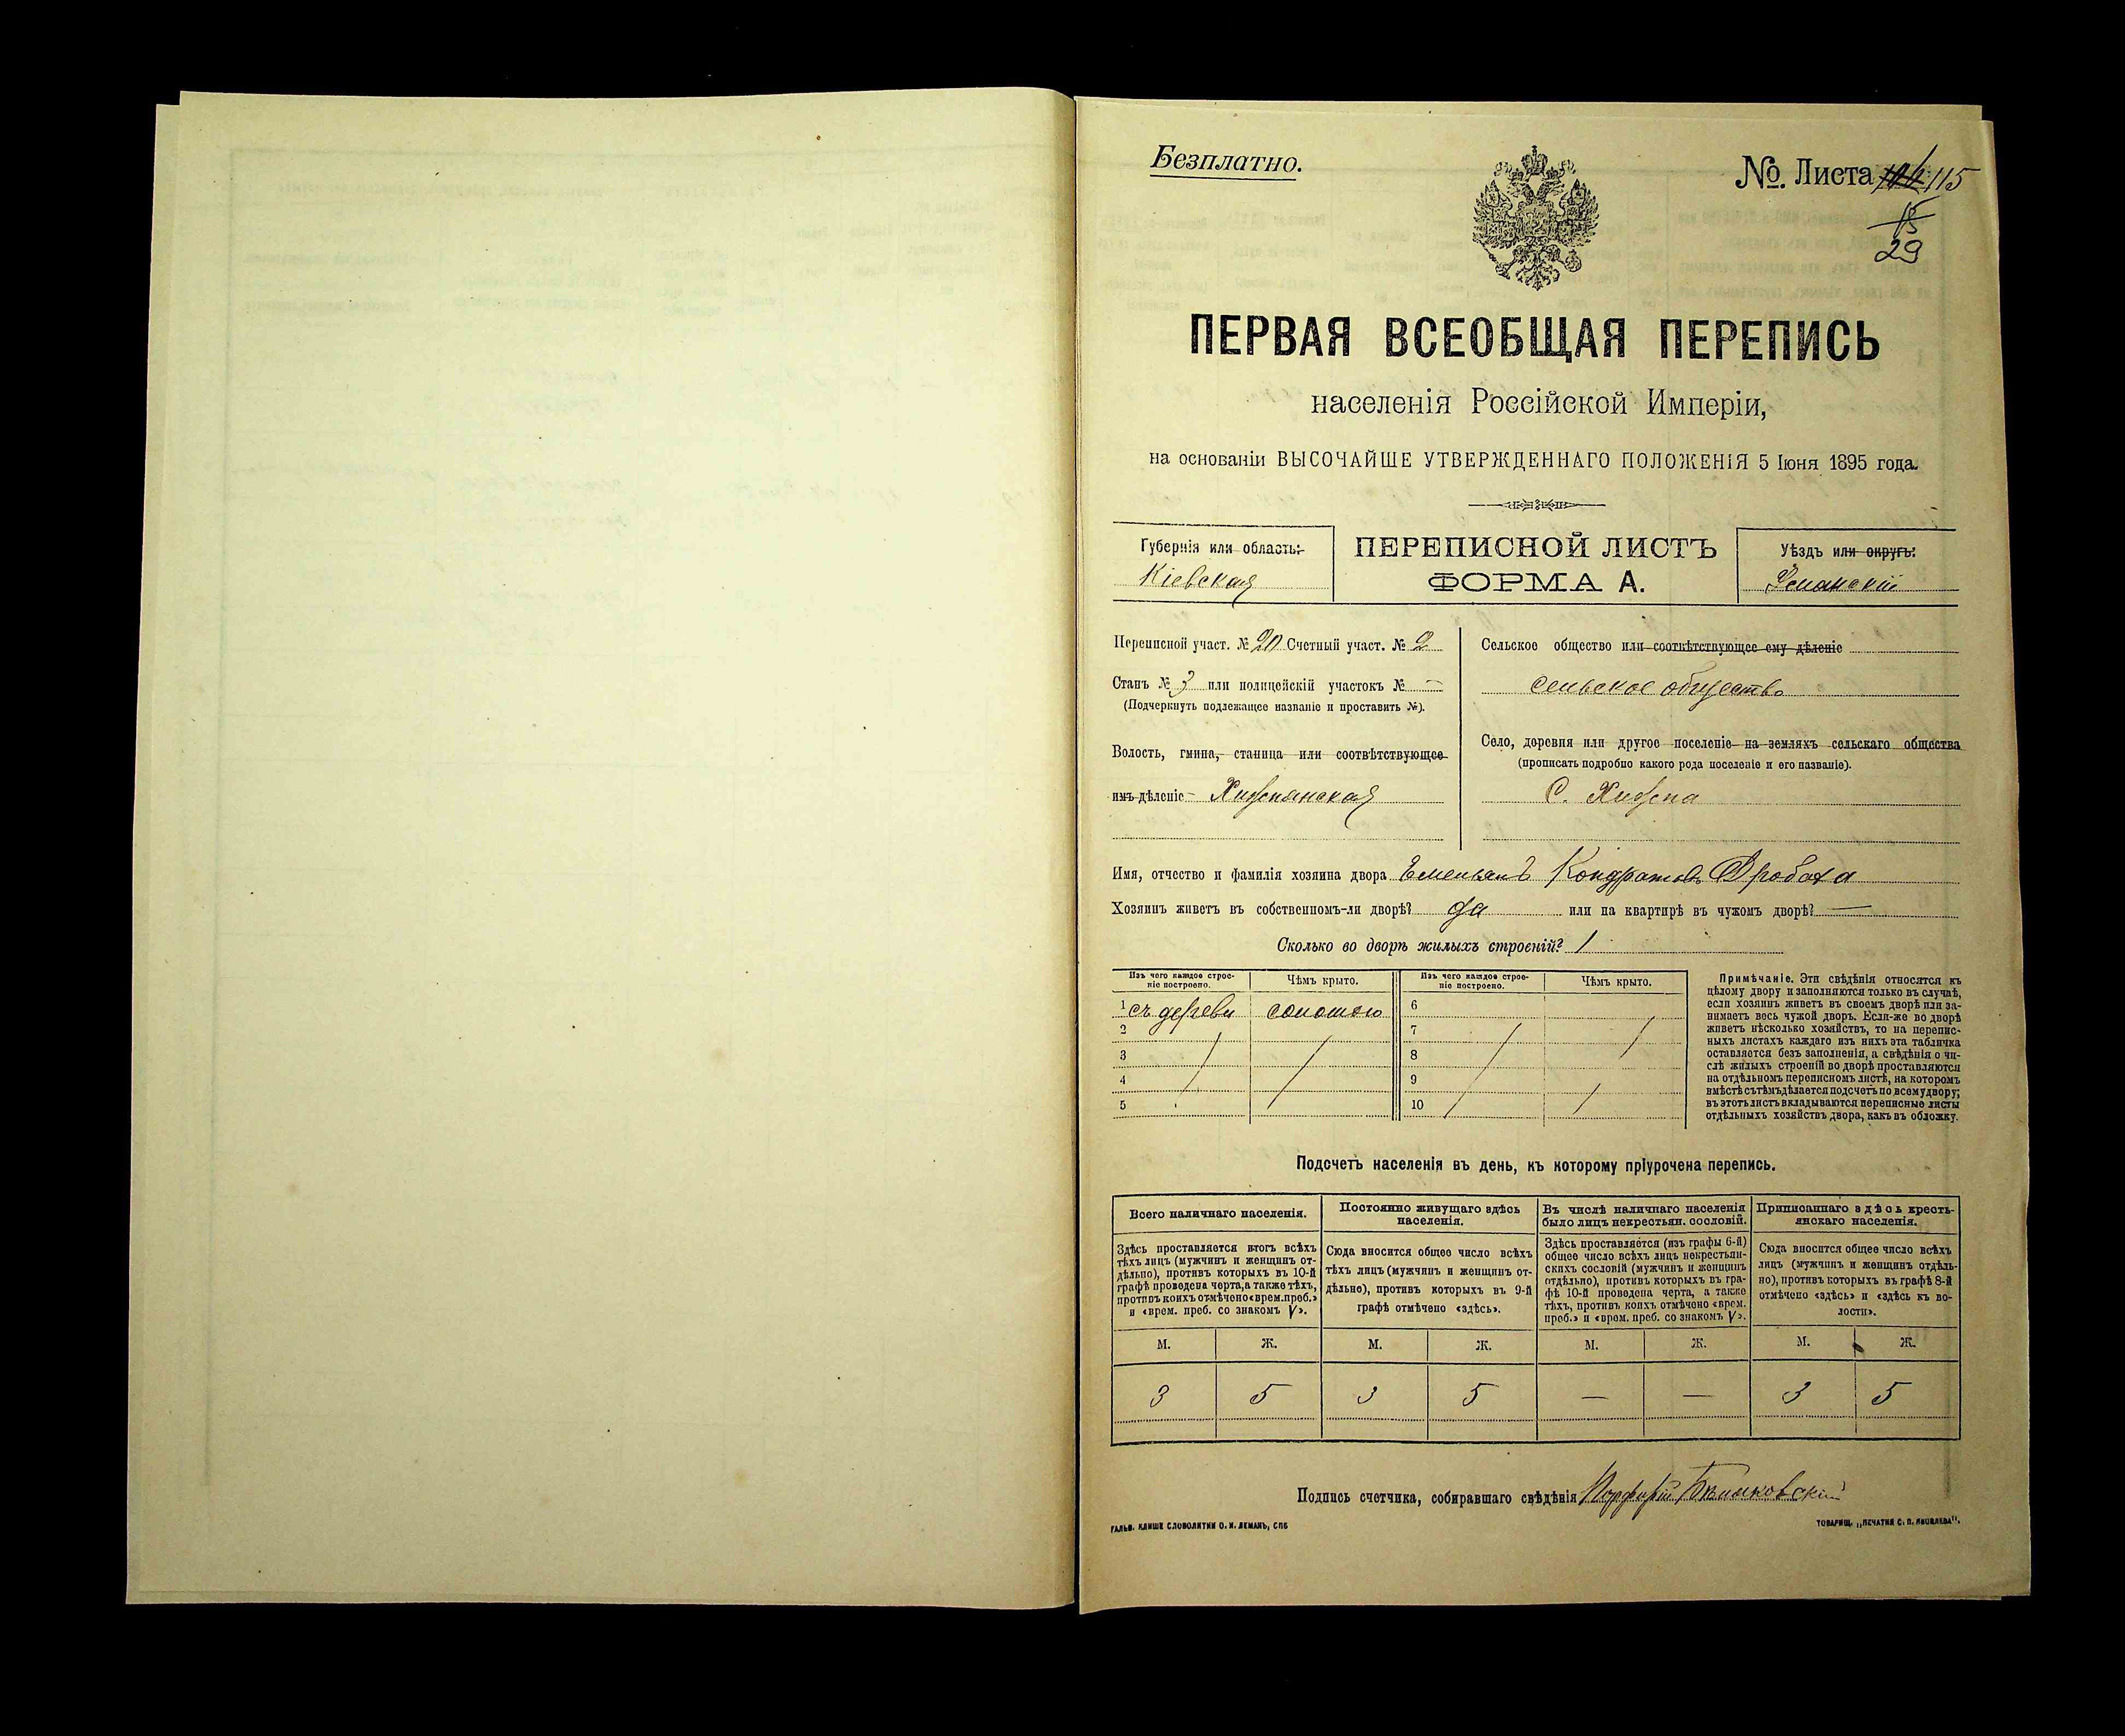 Безплатно.
№. Листа 115
15
29
ПЕРВАЯ ВСЕОБЩАЯ ПЕРЕПИСЬ
населенія Россійской Имперіи,
на основаніи ВЫСОЧАЙШЕ УТВЕРЖДЕННАГО ПОЛОЖЕНІЯ 5 Іюня 1895 года.
Губернія или область:
Кіевская
ПЕРЕПИСНОЙ ЛИСТЪ
ФОРМА А.
Уѣздъ или округъ:
Уманскій
Переписной участ. № 20 Счетный участ. № 2
Станъ № 3 или полицейскій участокъ № —
(Подчеркнуть подлежащее названіе и проставить №).
Волость, гмина, станица или соотвѣтствующее
имъ дѣленіе Хижнянская
Сельское общество или соотвѣтствующее ему дѣленіе
сельское общество
Село, деревня или другое поселеніе на земляхъ сельскаго общества
(прописать подробно какого рода поселеніе и его названіе).
С. Хижна
Имя, отчество и фамилія хозяина двора Емельянъ Кондратовъ Дробаха
Хозяинъ живетъ въ собственномъ-ли дворѣ? да или на квартирѣ въ чужомъ дворѣ? —
Сколько во дворѣ жилыхъ строеній? 1
Изъ чего каждое строе-
ніе построено.
Чѣмъ крыто.
Изъ чего каждое строе-
ніе построено.
Чѣмъ крыто.
1 съ дерева соломою 6
2 7
3 8
4 9
5 10
Примѣчаніе. Эти свѣдѣнія относятся къ
цѣлому двору и заполняются только въ случаѣ,
если хозяинъ живетъ въ своемъ дворѣ или за-
нимаетъ весь чужой дворъ. Если-же во дворѣ
живетъ нѣсколько хозяйствъ, то на перепис-
ныхъ листахъ каждаго изъ нихъ эта табличка
оставляется безъ заполненія, а свѣдѣнія о чи-
слѣ жилыхъ строеній во дворѣ проставляются
на отдѣльномъ переписномъ листѣ, на которомъ
вмѣстѣ съ тѣмъ дѣлается подсчетъ по всему двору;
въ этотъ листъ вкладываются переписные листы
отдѣльныхъ хозяйствъ двора, какъ въ обложку.
Подсчетъ населенія въ день, къ которому пріурочена перепись.
Всего наличнаго населенія.
Здѣсь проставляется итогъ всѣхъ
тѣхъ лицъ (мужчинъ и женщинъ от-
дѣльно), противъ которыхъ въ 10-й
графѣ проведена черта, а также тѣхъ,
противъ коихъ отмѣчено «врем. преб.»
и «врем. преб. со знакомъ V».
Постоянно живущаго здѣсь
населенія.
Сюда вносится общее число всѣхъ
тѣхъ лицъ (мужчинъ и женщинъ от-
дѣльно), противъ которыхъ въ 9-й
графѣ отмѣчено «здѣсь».
Въ числѣ наличнаго населенія
было лицъ некрестьян. сословій.
Здѣсь проставляется (изъ графы 6-й)
общее число всѣхъ лицъ некрестьян-
скихъ сословій (мужчинъ и женщинъ
отдѣльно), противъ которыхъ въ гра-
фѣ 10-й проведена черта, а также
тѣхъ, противъ коихъ отмѣчено «врем.
преб.» и «врем. преб. со знакомъ V».
Приписаннаго здѣсь кресть-
янскаго населенія.
Сюда вносится общее число всѣхъ
лицъ (мужчинъ и женщинъ отдѣль-
но), противъ которыхъ въ графѣ 8-й
отмѣчено «здѣсь» и «здѣсь къ во-
лости».
М. Ж. М. Ж. М. Ж. М. Ж.
3 5 3 5 — — 3 5
Подпись счетчика, собиравшаго свѣдѣнія Порфирій
ГАЛЬВ. КЛИШЕ СЛОВОЛИТНИ О. И. ЛЕМАНЪ, СПБ
ТОВАРИЩ. „ПЕЧАТНЯ С. П. ЯКОВЛЕВА".